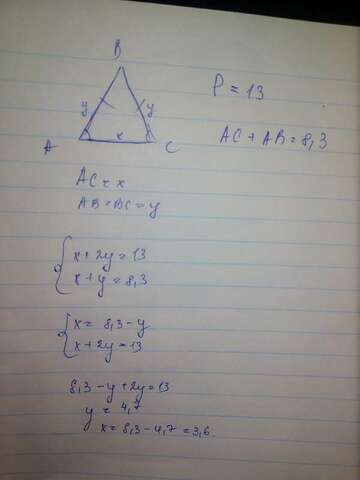 B
P = 13
y y
AC + AB = 8,3
A x C
AC = x
AB = BC = y
x + 2y = 13
x + y = 8,3
x = 8,3 - y
x + 2y = 13
8,3 - y + 2y = 13
y = 4,7
x = 8,3 - 4,7 = 3,6.